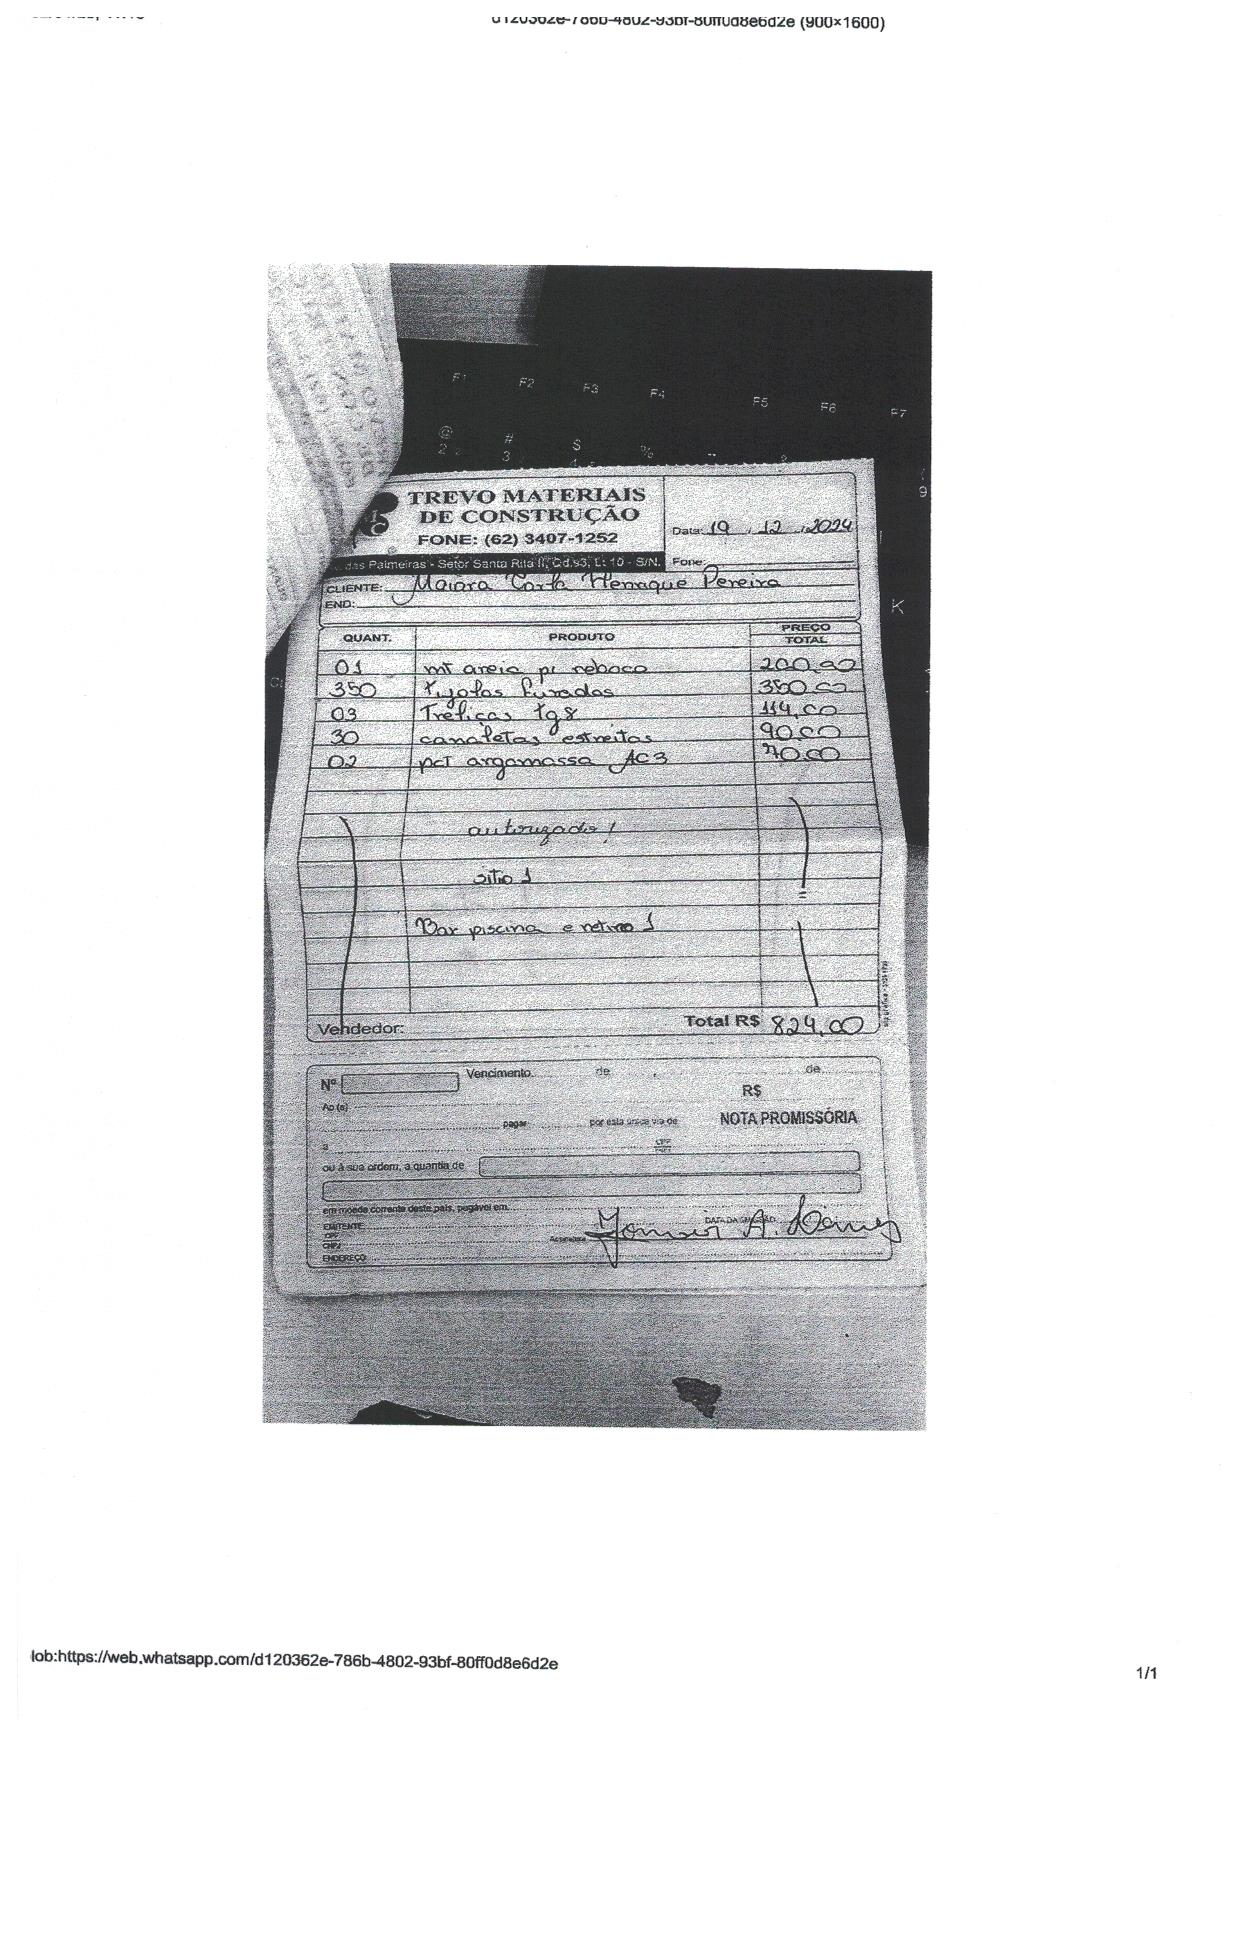 d120362e-786b-4802-93bf-80ff0d8e6d2e (900×1600)
F1 F2 F3 F4 F5 F6 F7
@ # $ %
2 3 4
9
K
TREVO MATERIAIS
DE CONSTRUÇÃO
FONE: (62) 3407-1252
das Palmeiras - Setor Santa Rita II, Qd.s3, Lt 10 - S/N.
Data: 19 . 12 . 2024
Fone:
CLIENTE: Maiara Carla Henrique Pereira
END:
QUANT. PRODUTO PREÇO TOTAL
01 mt areia p/ reboco 200,00
350 tijolos furados 350,00
03 Treliças tg8 114,00
30 canaletas estreitas 90,00
02 pct argamassa AC3 70,00
autorizado!
sitio 1
Bar piscina e retiro 1
Vendedor: Total R$ 824,00
Nº Vencimento de de
R$
Ao(a)
NOTA PROMISSÓRIA
pagar por esta única via de
a
ou à sua ordem, a quantia de
em moeda corrente deste país, pagável em
EMITENTE
CPF
CNPJ
ENDEREÇO
DATA DA EMISSÃO
Assinatura
lob:https://web.whatsapp.com/d120362e-786b-4802-93bf-80ff0d8e6d2e
1/1